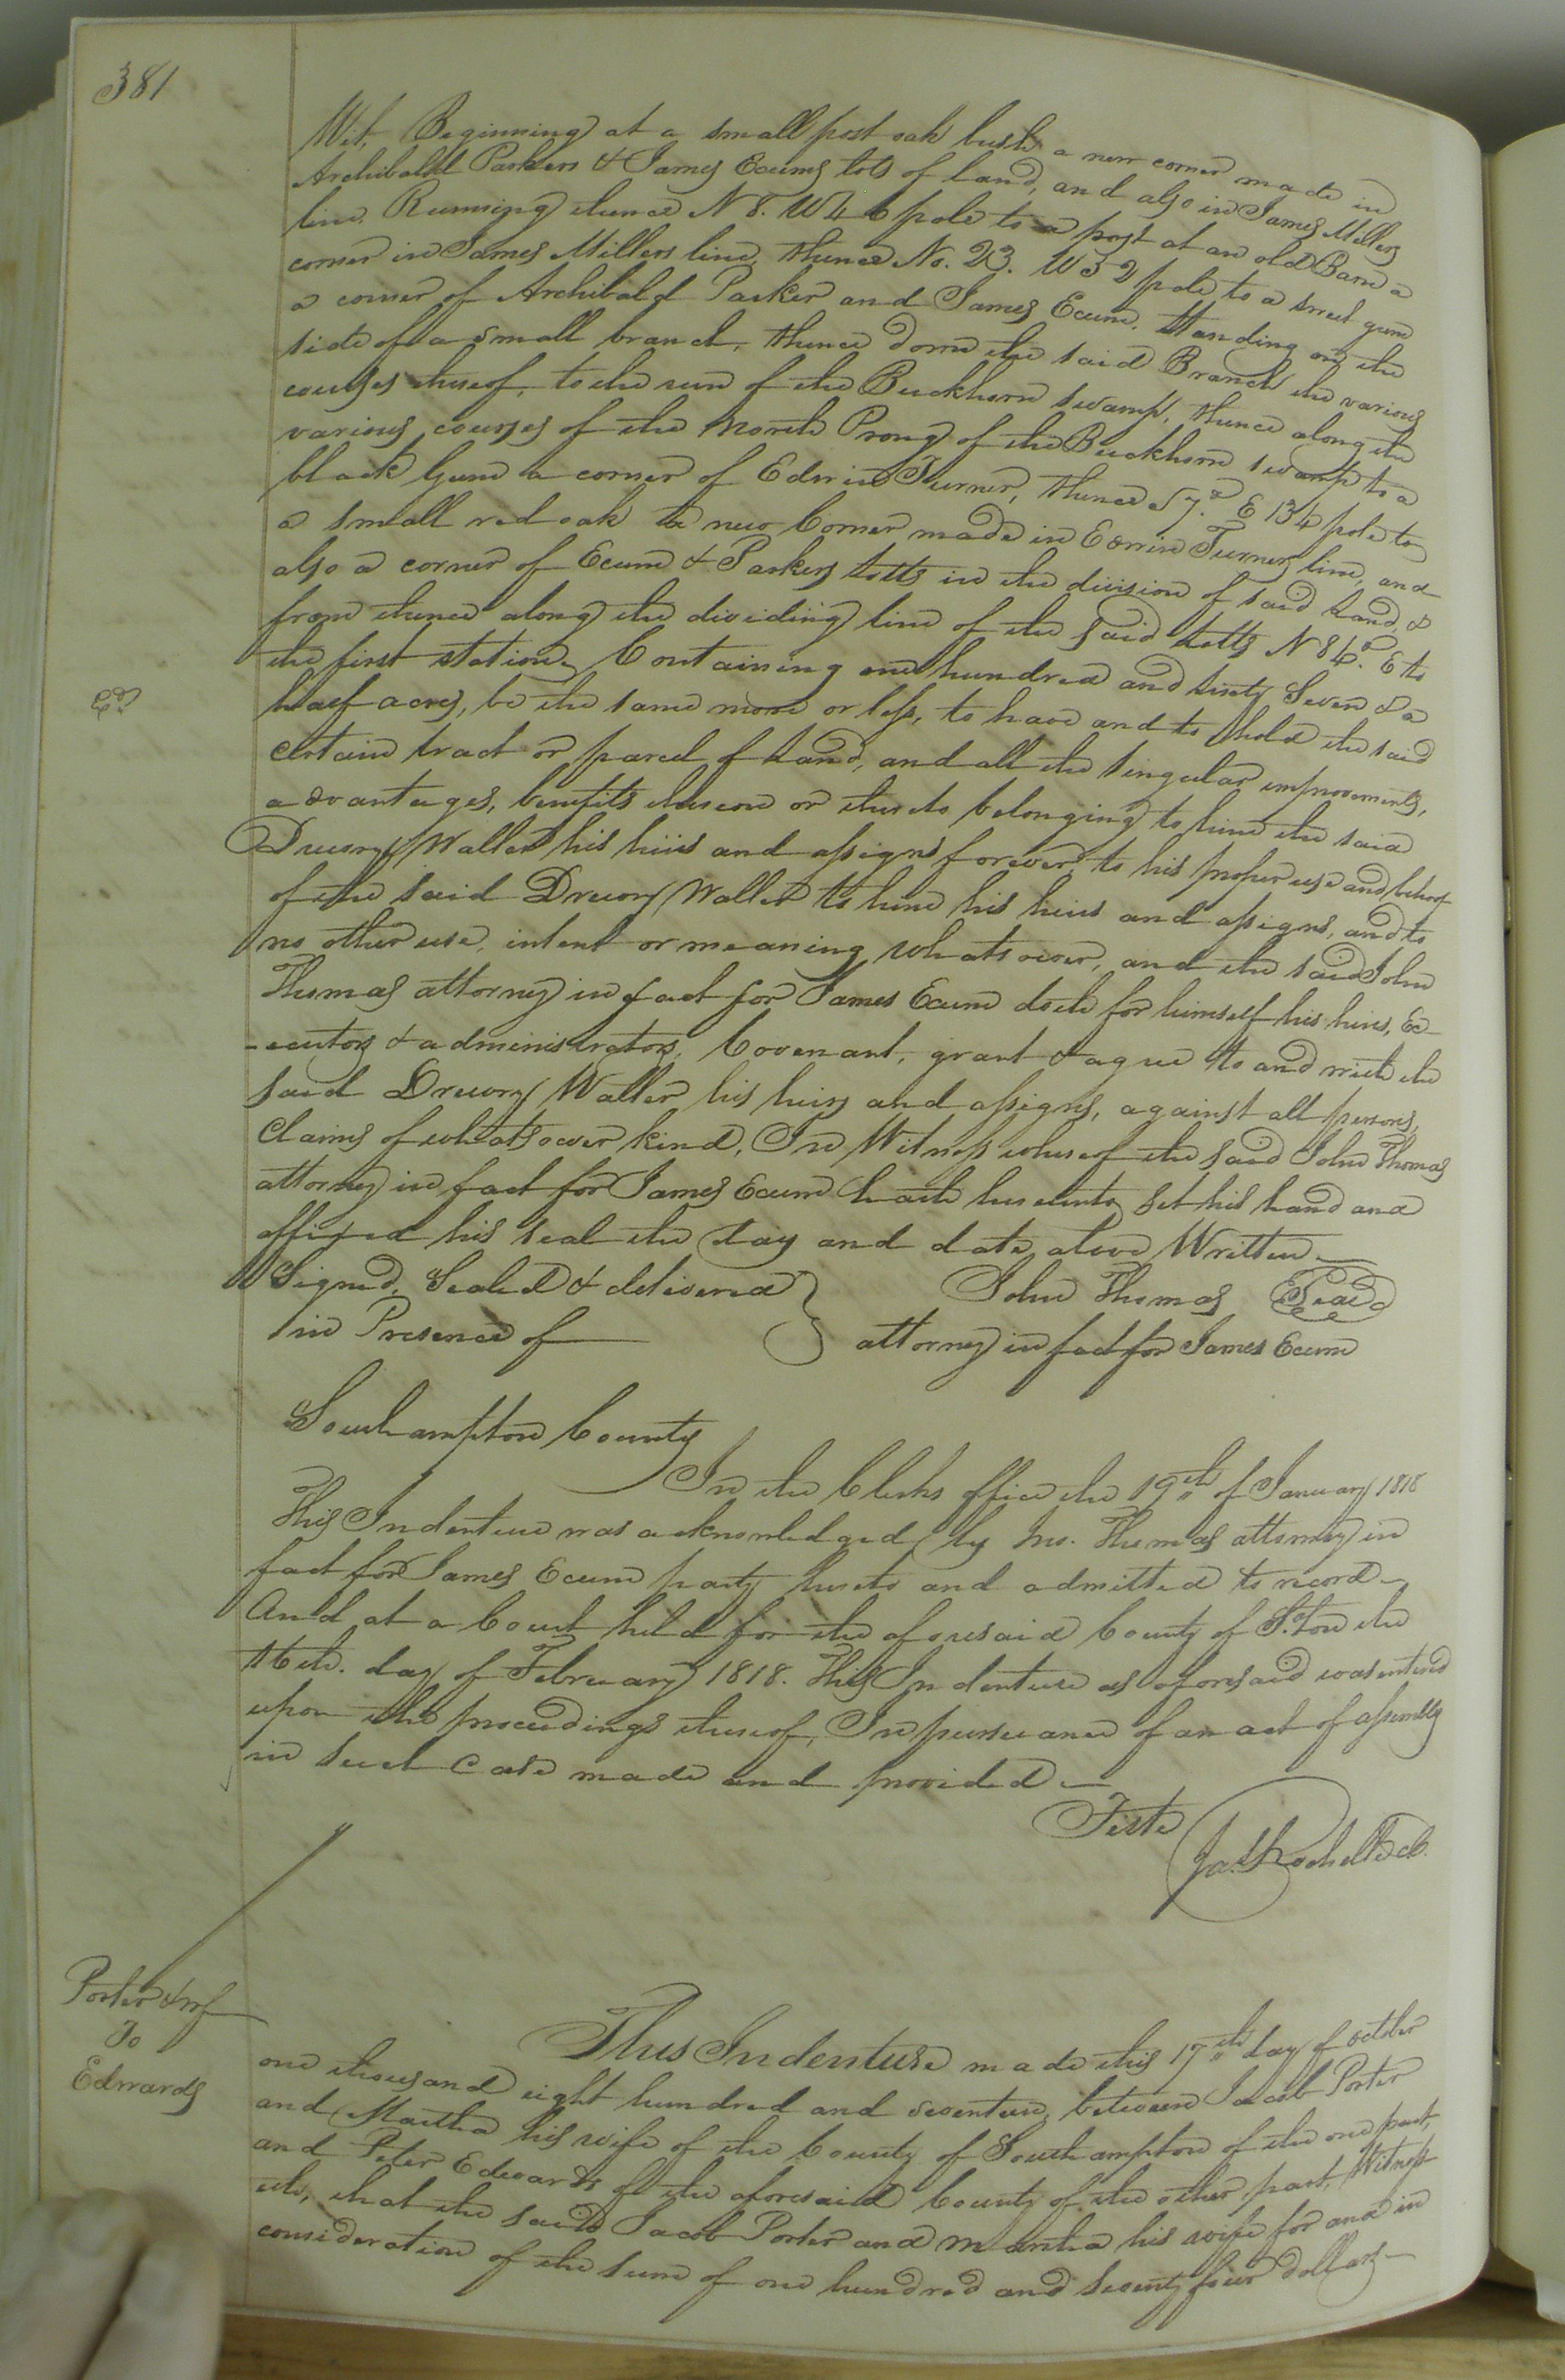 381
Wit, Beginning at a small post oak bush a new corner made in
Archibald Parkers & James Ecums lots of land, and also in James Millers
line. Running thence N 8. W 46 pole to a post at an old Barn a
corner in James Millers line, thence No. 23. W 32 pole to a sweet gum
a corner of Archibald Parker and James Ecum, standing on the
side of a small branch, thence down the said Branch the various
courses thereof, to the run of the Buckhorn swamp, thence along the
various courses of the North Prong of the Buckhorn swamp to a
black Gum a corner of Edwin Turner, thence S 7.º E 134 pole to
a small red oak a new Corner made in Edwin Turners line, and
also a corner of Ecum & Parkers Lotts in the division of said Land, &
from thence along the dividing line of the said Lotts N 84.º E to
the first station, Containing one hundred and sixty Seven & a
half acres, be the same more or less, to have and to hold the said
certain tract or parcel of Land, and all the singular improvements,
advantages, benefits thereon or thereto belonging to him the said
Drewry Waller his heirs and assigns forever, to his proper use and behoof
of the said Drewry Waller to him his heirs and assigns, and to
no other use, intent or meaning whatsoever, and the said John
Thomas attorney in fact for James Ecum doth for himself his heirs, Ex-
-ecutors & administrators, Covenant, grant & agree to and with the
said Drewry Waller his heirs and assigns, against all persons,
Claims of whatsoever kind, In Witness whereof the said John Thomas
attorney in fact for James Ecum hath hereunto set his hand and
affixed his seal the day and date above Written
Signed, Sealed & delivered } John Thomas Seal
in Presence of } attorney in fact for James Ecum
Southampton County
In the Clerks office the 19th of January 1818
This Indenture was acknowledged by Jno. Thomas attorney in
fact for James Ecum party hereto and admitted to record
And at a Court held for the aforesaid County of S.ton the
16th. day of February 1818. This Indenture as aforesaid was entered
upon the proceedings thereof, In pursuance of an act of assembly
in such case made and provided
Teste
Jas. Rochelle Cl.
Porter & wf
To
Edwards
This Indenture made this 17th day of october
one thousand eight hundred and seventeen, between Jacob Porter
and Martha his wife of the County of Southampton of the one part,
and Peter Edwards of the aforesaid County of the other part, Witness-
eth, that the said Jacob Porter and Martha his wife for and in
consideration of the sum of one hundred and seventy four dollars